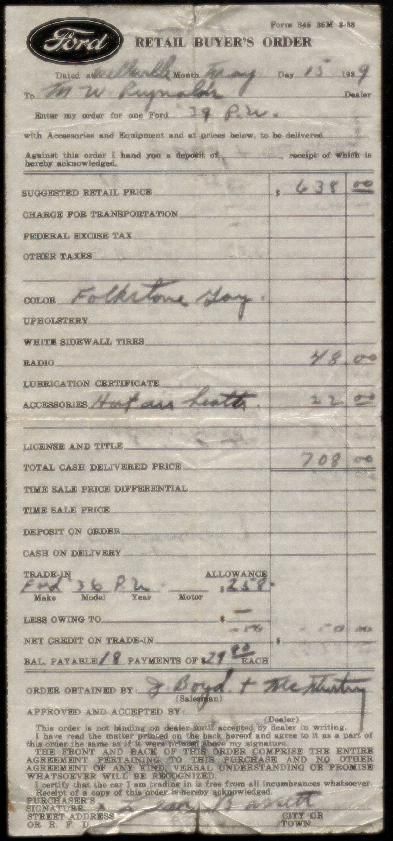 Form 346 35M 3-38
Ford RETAIL BUYER'S ORDER
Dated at Month May Day 15 1939
To M W Reynolds Dealer
Enter my order for one Ford '39 P.U.
with Accessories and Equipment and at prices below, to be delivered
Against this order I hand you a deposit of receipt of which is
hereby acknowledged.
SUGGESTED RETAIL PRICE $ 638 00
CHARGE FOR TRANSPORTATION
FEDERAL EXCISE TAX
OTHER TAXES
COLOR Folkstone Gray.
UPHOLSTERY
WHITE SIDEWALL TIRES
RADIO 48 00
LUBRICATION CERTIFICATE
ACCESSORIES 22 00
LICENSE AND TITLE
TOTAL CASH DELIVERED PRICE 708 00
TIME SALE PRICE DIFFERENTIAL
TIME SALE PRICE
DEPOSIT ON ORDER
CASH ON DELIVERY
TRADE-IN ALLOWANCE
Ford '36 P.U. $ 258-
Make Model Year Motor
LESS OWING TO $ -
NET CREDIT ON TRADE-IN $
BAL. PAYABLE 18 PAYMENTS OF $ 29 EACH
ORDER OBTAINED BY J Boyd + McMurtry
(Salesman)
APPROVED AND ACCEPTED BY
(Dealer)
This order is not binding on dealer until accepted by dealer in writing.
I have read the matter printed on the back hereof and agree to it as a part of
this order the same as if it were printed above my signature.
THE FRONT AND BACK OF THIS ORDER COMPRISE THE ENTIRE
AGREEMENT PERTAINING TO THIS PURCHASE AND NO OTHER
AGREEMENT OF ANY KIND, VERBAL UNDERSTANDING OR PROMISE
WHATSOEVER WILL BE RECOGNIZED.
I certify that the car I am trading in is free from all incumbrances whatsoever.
Receipt of a copy of this order is hereby acknowledged.
PURCHASER'S
SIGNATURE
STREET ADDRESS CITY OR
OR R. F. D. TOWN